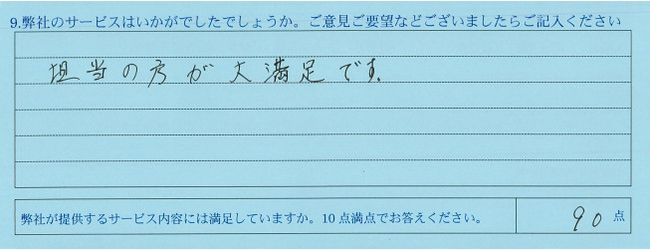 9.弊社のサービスはいかがでしたでしょうか。ご意見ご要望などございましたらご記入ください
担当の方が大満足です.
弊社が提供するサービス内容には満足していますか。10点満点でお答えください。
90点